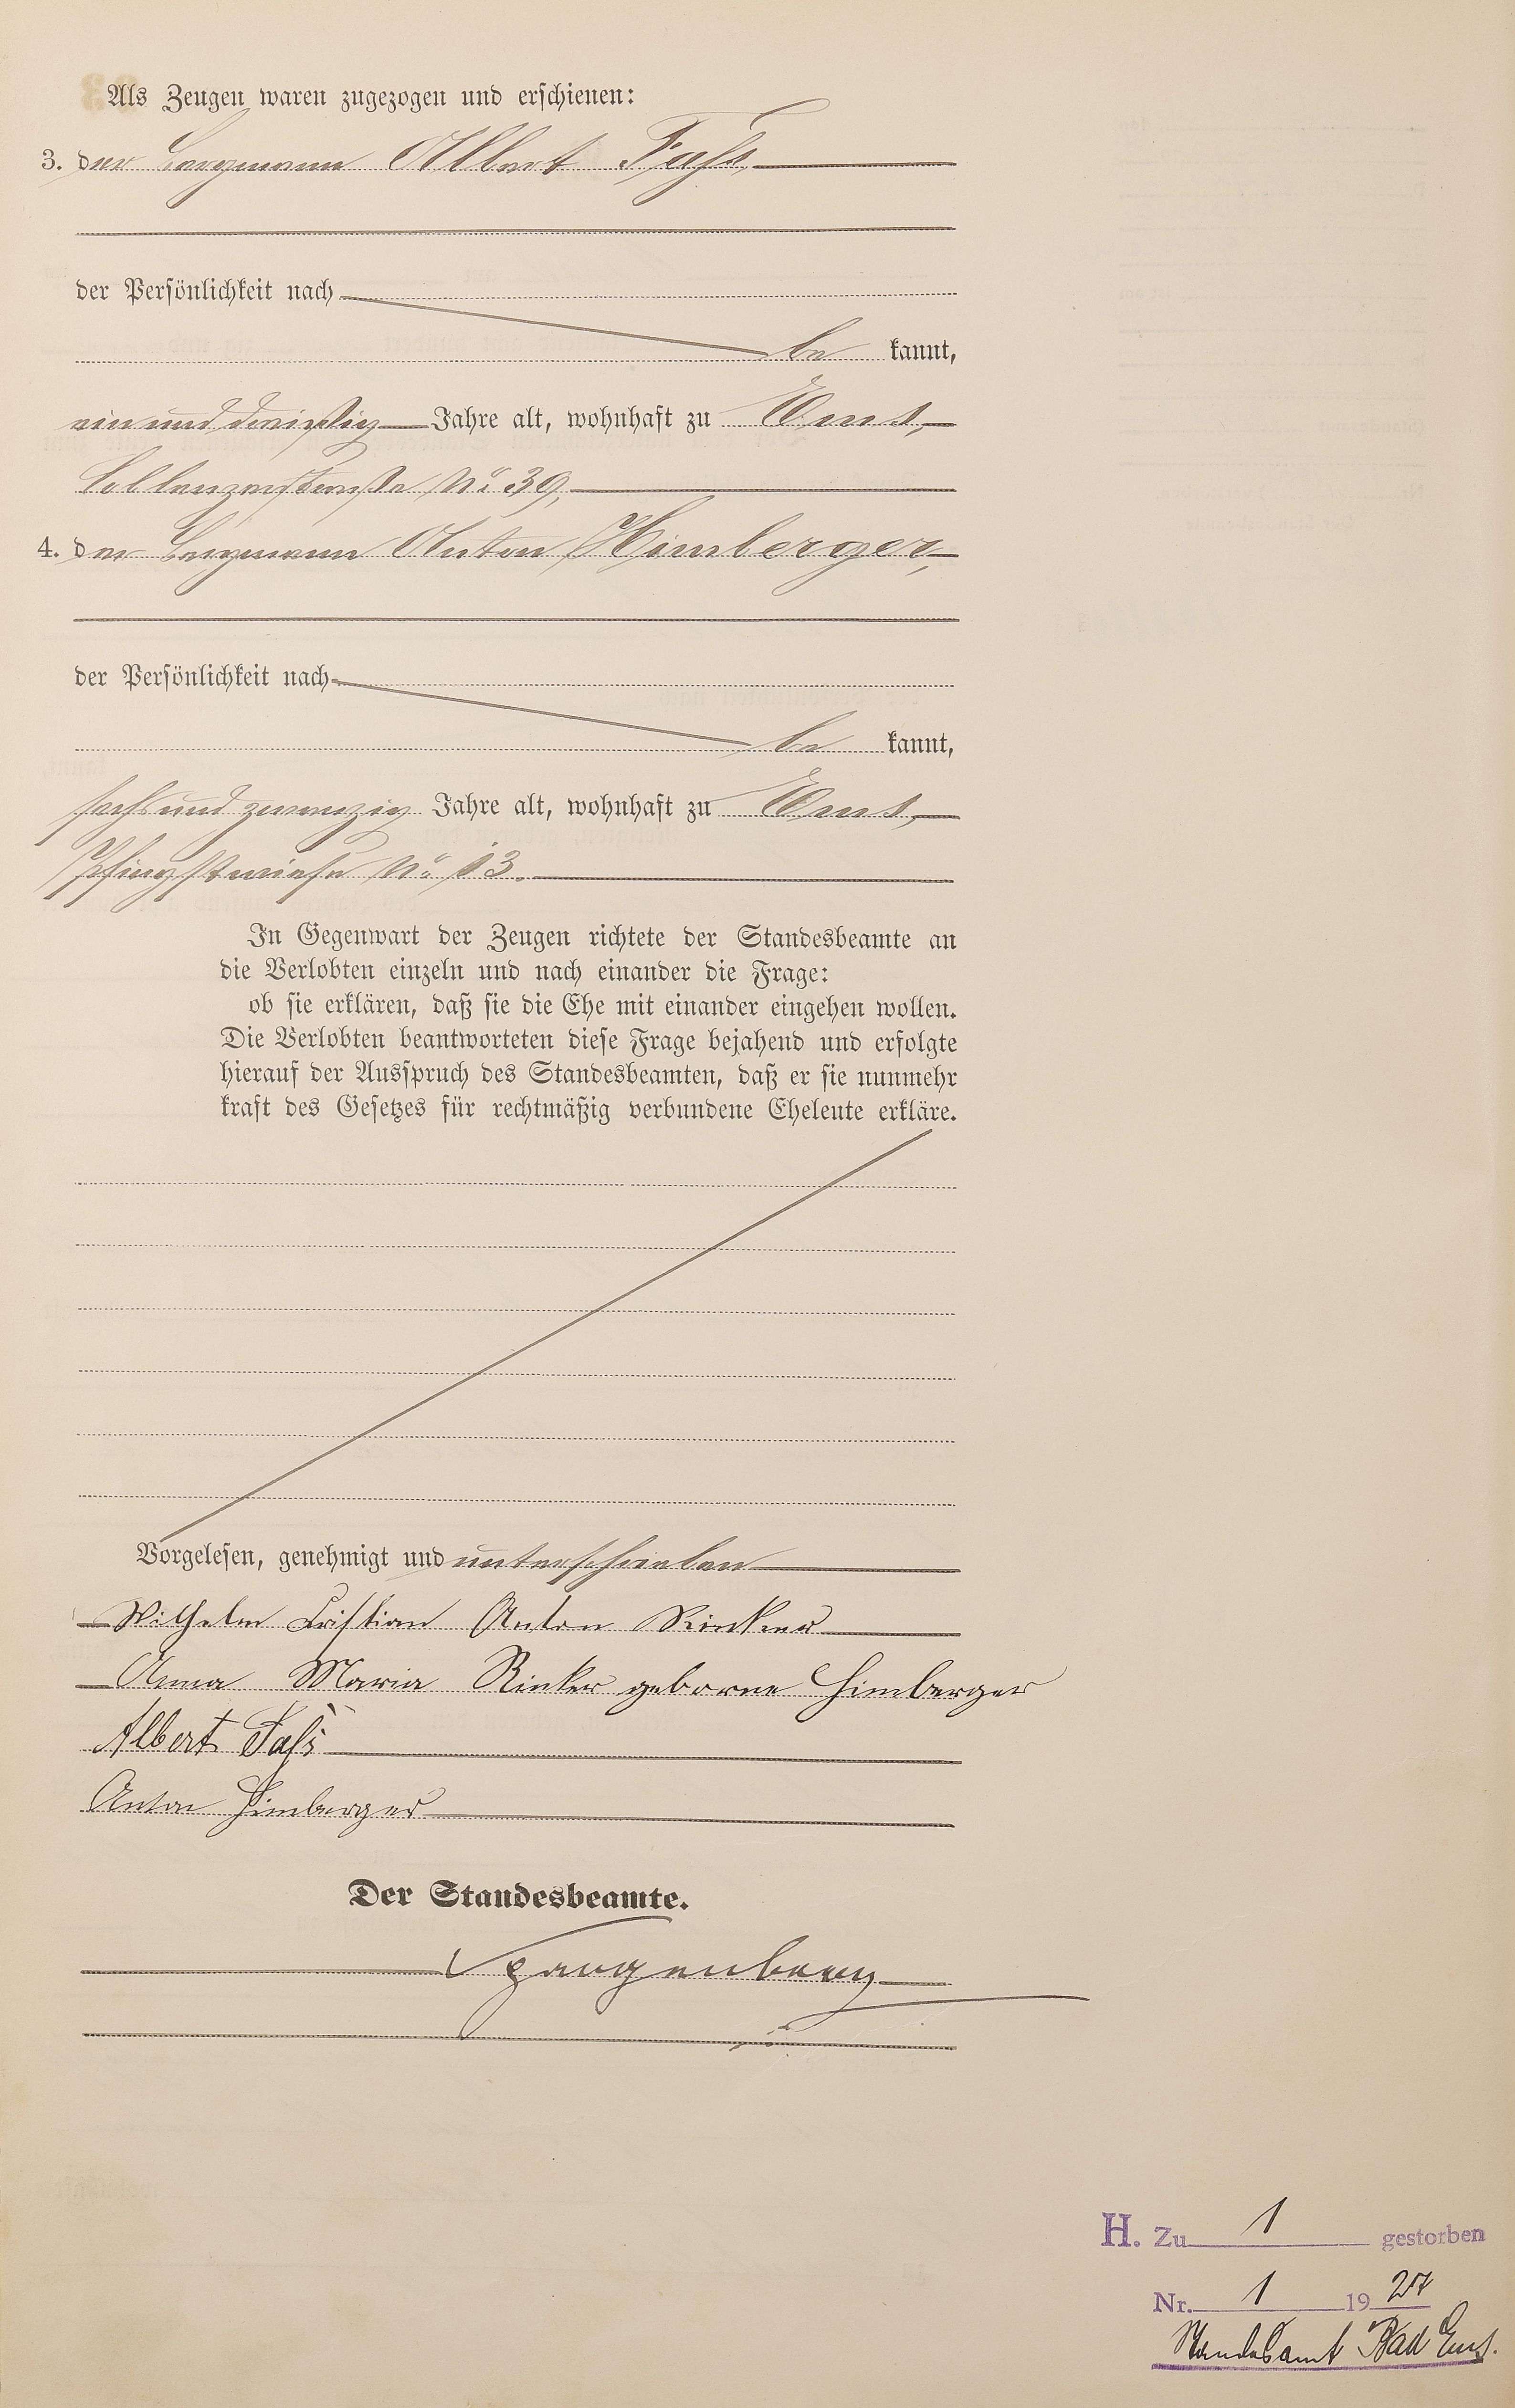 Als Zeugen waren zugezogen und erschienen:
3. der Bergmann Albert Faß,
der Persönlichkeit nach
be kannt,
ein und dreißig Jahre alt, wohnhaft zu Ems,
Coblenzerstraße No. 39,
4. der Bergmann Anton Himberger,
der Persönlichkeit nach
be kannt,
sechs und zwanzig Jahre alt, wohnhaft zu Ems,
Pfingstwiese No. 13.
In Gegenwart der Zeugen richtete der Standesbeamte an
die Verlobten einzeln und nach einander die Frage:
ob sie erklären, daß sie die Ehe mit einander eingehen wollen.
Die Verlobten beantworteten diese Frage bejahend und erfolgte
hierauf der Ausspruch des Standesbeamten, daß er sie nunmehr
kraft des Gesetzes für rechtmäßig verbundene Eheleute erkläre.
Vorgelesen, genehmigt und unterschrieben
Wilhelm Cristian Anton Rinker
Anna Maria Rinker geborne Himberger
Albert Faß
Anton Himberger
Der Standesbeamte.
Spangenberg
H. Zu 1 gestorben
Nr. 1 19 27
Standesamt Bad Ems.